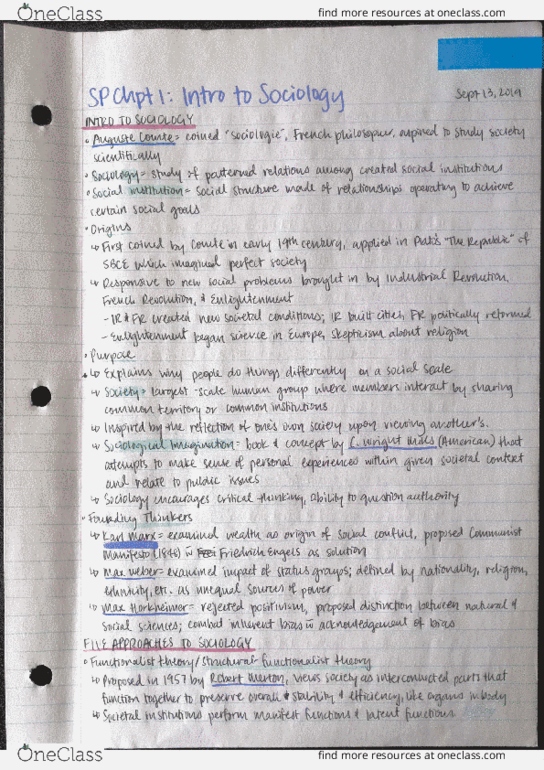 OneClass
find more resources at oneclass.com
SP Chpt 1: Intro to Sociology
Sept 13, 2019
INTRO TO SOCIOLOGY
• Auguste Comte = coined "sociologie", French philosopher, aspired to study society
scientifically
• Sociology = study of patterned relations among created social institutions
• Social institution = social structure made of relationships operating to achieve
certain social goals
• Origins
↳ First coined by Comte in early 19th century, applied in Plato's "The Republic" of
5BCE which imagined perfect society
↳ Responsive to new social problems brought in by Industrial Revolution,
French Revolution, & Enlightenment
- IR & FR created new societal conditions; IR built cities, FR politically reformed
- Enlightenment began science in Europe, skepticism about religion
• Purpose
↳ Explains why people do things differently on a social scale
↳ Society = largest-scale human group where members interact by sharing
common territory or common institutions
↳ Inspired by the reflection of one's own society upon viewing another's.
↳ Sociological Imagination = book & concept by C. Wright Mills (American) that
attempts to make sense of personal experiences within given societal context
and relate to public issues
↳ Sociology encourages critical thinking, ability to question authority
• Founding Thinkers
↳ Karl Marx = examined wealth as origin of social conflict, proposed Communist
Manifesto (1848) w Friedrich Engels as solution
↳ Max Weber = examined impact of status groups; defined by nationality, religion,
ethnicity, etc. as unequal sources of power
↳ Max Horkheimer = rejected positivism, proposed distinction between natural &
social sciences; combat inherent bias w acknowledgement of bias
FIVE APPROACHES TO SOCIOLOGY
• Functionalist theory / structural functionalist theory
↳ Proposed in 1957 by Robert Merton, views society as interconnected parts that
function together to preserve overall stability & efficiency, like organs in body
↳ Societal institutions perform manifest functions & latent functions
OneClass
find more resources at oneclass.com